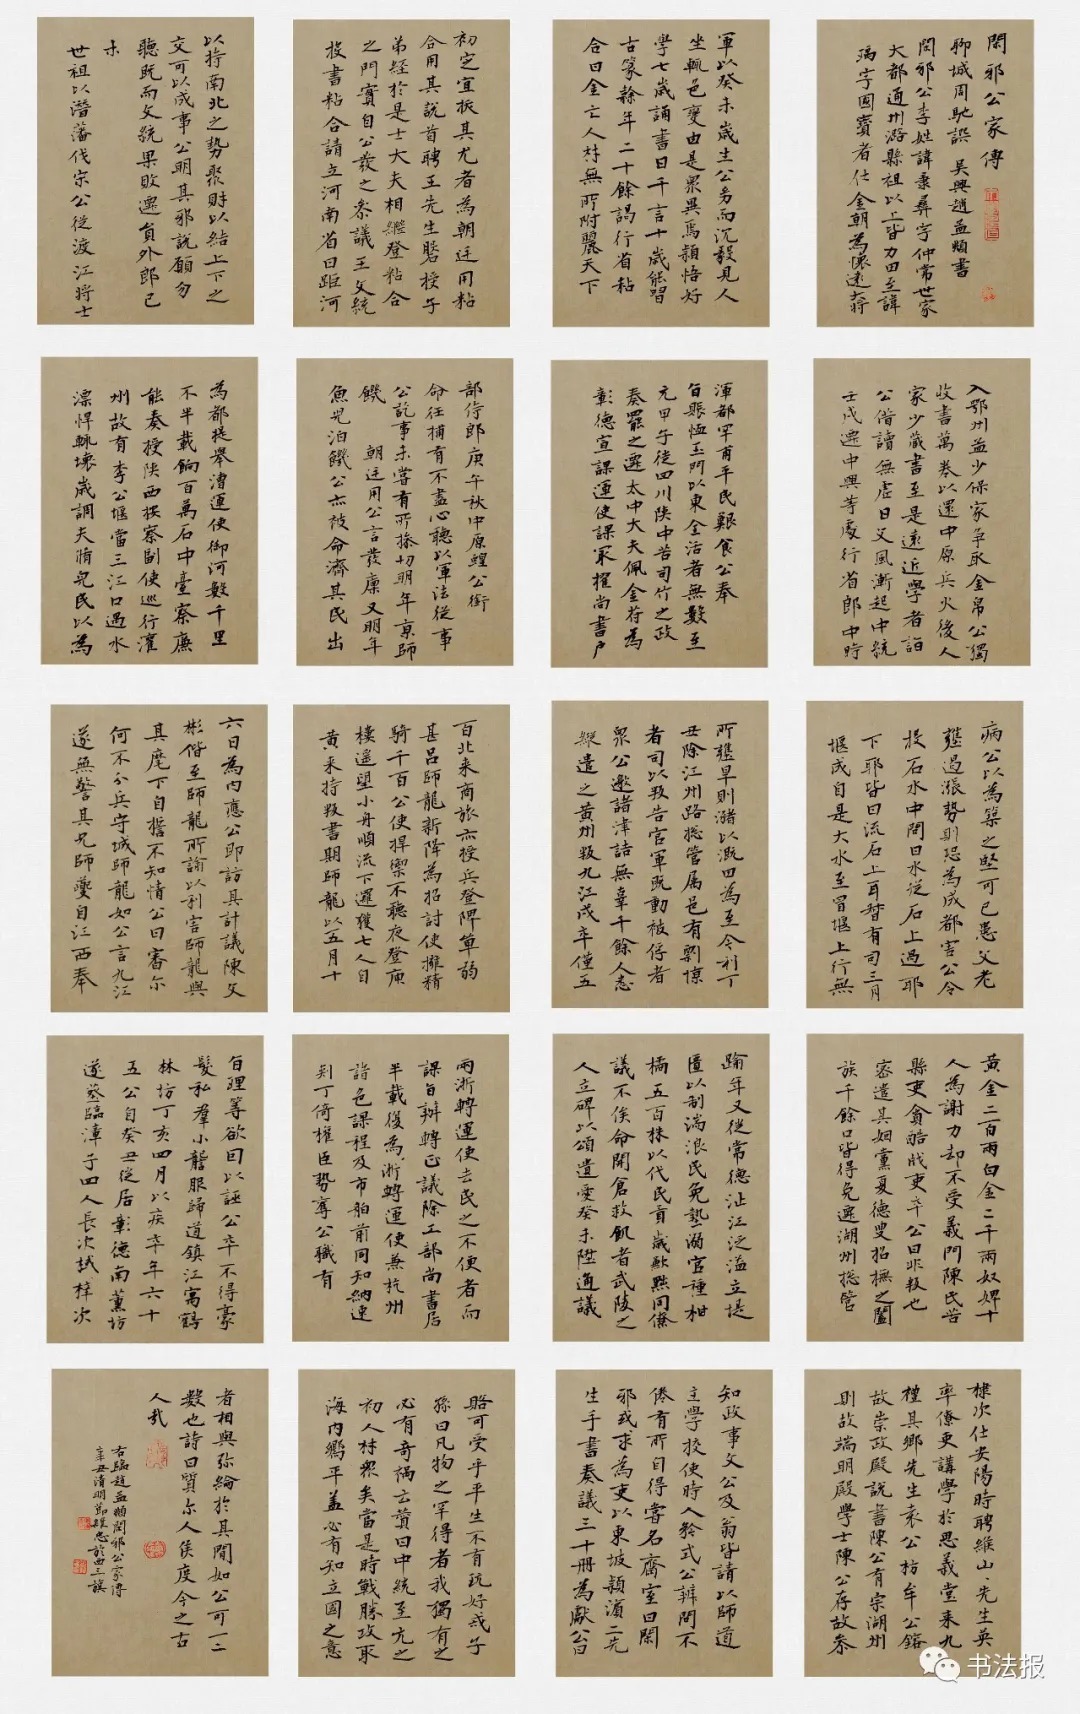 閑邪公家傳
聊城周馳譔 吳興趙孟頫書
閑邪公李姓諱秉彝字仲常世家
大都通州潞縣祖以上皆力田至諱
瑀字國寶者仕金朝為懷遠大將
軍以癸未歲生公多而沉毅見人
坐輒色變由是衆異焉穎悟好
學七歲誦書日千言十歲能習
古篆餘年二十餘謁行省粘
合曰金亡人材無所附麗天下
初定宜拔其尤者為朝廷用粘
合用其說首聘王先生磐授子
弟經於是士大夫相繼登粘合
之門實自公發之參議王文統
投書粘合請立河南省曰距河
以持南北之勢聚財以結上下之
交可以成事公明其邪說願勿
聽既而文統果敗遷員外郎己
未
世祖以潛藩伐宋公從渡江將士
入鄂州益少保家爭取金帛公獨
收書萬卷以還中原兵火後人
家少藏書至是遠近學者詣
公借讀無虛日文風漸起中統
壬戌遷中興等處行省郎中時
渾都罕甫平民艱食公奉
旨賑恤玉門以東全活者無數至
元甲子從四川陝中苦司竹之政
奏罷之遷太中大夫佩金符為
彰德宣課運使課最擢尚書戶
部侍郎庚午秋中原蝗公銜
命往捕有不盡心聽以軍法從事
公訖事未嘗有所捶切明年京師
饑 朝廷用公言發廩又明年
魚兒泊饑公亦被命濟其民出
為都提舉漕運使御河數千里
不半載餉百萬石中臺察廉
能奏授陝西按察副使巡行灌
州故有李公堰當三江口過水
漂悍輒壞歲調夫脩兒民以為
病公以為築之堅可已愚父老
壅過漲勢則恐為成都害公令
投石水中問曰水從石上過耶
下耶皆曰流石上耳暫有司三月
堰成自是大水至冒堰上行無
所壅旱則瀦以溉田為至今利丁
丑除江州路總管屬邑有劉慷
者司以叛告官軍既動被俘者
衆公邀諸津詰無辜千餘人悉
縱遣之黃州叛九江戍卒僅五
百北來商旅亦授兵登陴單弱
甚呂師龍新降為招討使擁精
騎千百公使捍禦不聽夜登庾
樓遙望小舟順流下邏獲七人自
黃來持叛書期師龍以五月十
六日為內應公即訪具計議陳文
彬偕至師龍所諭以利害師龍與
其麾下自誓不知情公曰審尔
何不分兵守城師龍如公言九江
遂無警其兄師夔自江西奉
黃金二百兩白金二千兩奴婢十
人為謝力却不受義門陳氏苦
縣吏貪酷戕吏卒公曰非叛也
密遣其姻黨夏德叟招撫之闔
族千餘口皆得免遷湖州總管
踰年又從常德沚江泛溢立堤
匱以制湍浪民免墊溺官種柑
橘五百株以代民貢歲歉與同僚
議不俟命開倉救飢者武陵之
人立碑以頌遺愛癸未陞通議
兩浙轉運使去民之不便者而
課自辦轉正議除工部尚書居
半載復為浙轉運使兼杭州
諸色課程及市舶前同知納速
剌丁倚權臣勢奪公職有
旨理等欲因以誣公卒不得豪
髮私羣小讋服歸道鎮江寓鶴
林坊丁亥四月以疾卒年六十
五公自癸丑從居彰德南薰坊
遂葬臨漳子四人長次試梓次
棣次仕安陽時聘維山先生英
率僚吏講學於思義堂來九
禮其鄉先生袁公枋牟公鎔
故崇政殿說書陳公有宗湖州
則故端明殿學士陳公存故參
知政事文公及翁皆請以師道
主學校使時人矜式公辨問不
倦有所自得嘗名齋室曰閑
邪或求為吏以東坡穎濵二先
生手書奏議三十冊為獻公曰
賂可受乎平生不有玩好戒子
孫曰凡物之罕得者我獨有之
必有奇禍云贊曰中統至元之
初人材衆矣當是時戰勝攻取
海內嚮平蓋必有知立國之意
者相與弥綸於其間如公可一二
數也詩曰質尔人侯度今之古
人哉
右臨趙孟頫閑邪公家傳
辛丑清明節
書法报